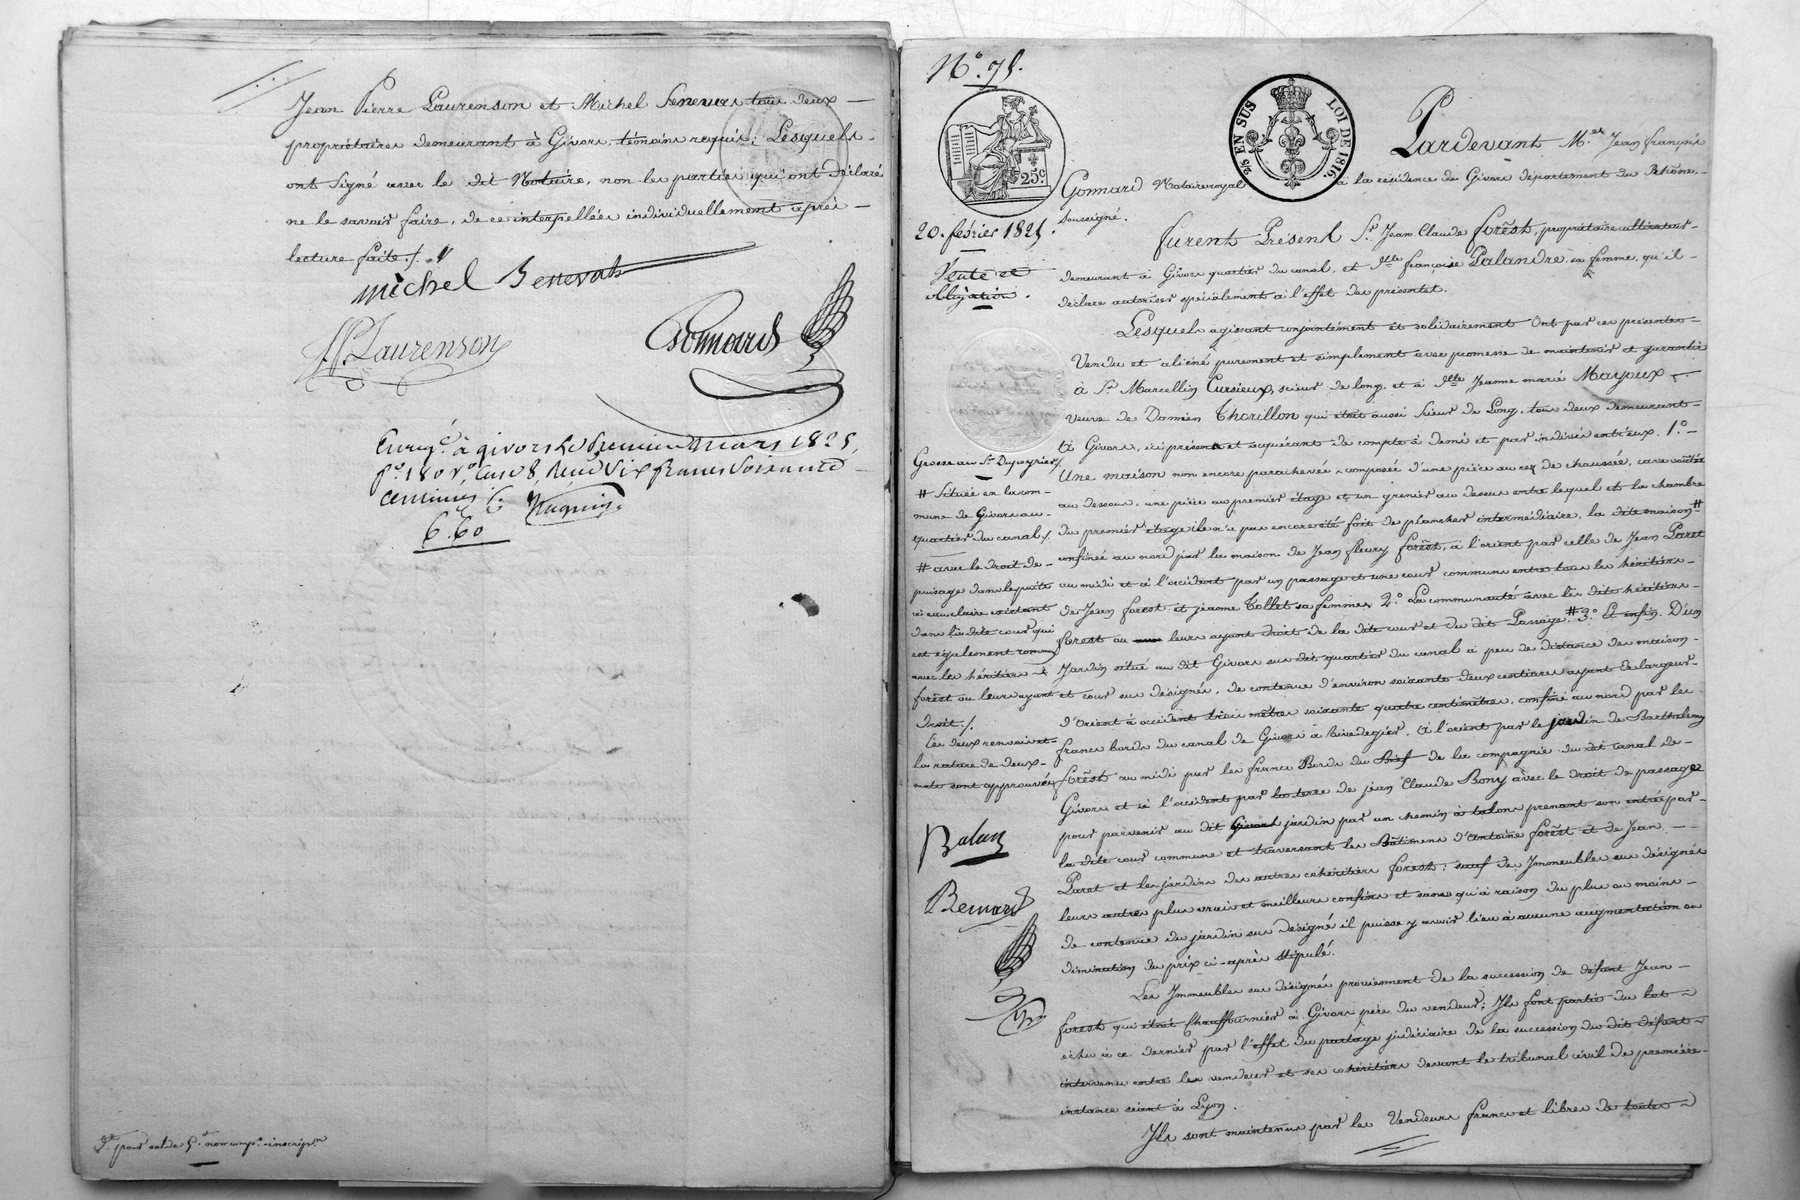 Jean Pierre Laurenson et Michel Senevas tous deux
propriétaires demeurant à Givors, témoins requis; Lesquels
ont signé avec le dit Notaire, non les parties qui ont déclaré
ne le savoir faire, de ce interpellées individuellement après
lecture faite./.
michel
JP Laurenson
Gonnard
Enreg.é à givors le premier mars 1825,
f.o 180 v.o, Case 8, Reçu Six francs Soixante
centimes
6.60
N.o 75.
25 EN SUS LOI DE 1816.
25c
Pardevant M.e Jean françois
Gonnard Notaire royal à la résidence de Givors département du Rhône,
soussigné.
20. février 1825.
Vente et
obligation.
furent Présent S.r Jean Claude forêst, propriétaire cultivateur
demeurant à Givors quartier du canal, et D.lle françoise Palandre sa femme, qu'il
déclare autoriser spécialement à l'effet des présentes.
Lesquels agissant conjointement et solidairement Ont par ces présentes
Vendu et aliéné purement et simplement avec promesse de maintenir et garantir
à S.r Marcellin Cursieux, scieur de long, et à D.lle Jeanne marie Mayoux
veuve de Damien Thorillon qui était aussi Scieur de Long, tous deux demeurant
à Givors, ici présents et acquérant de compte à demi et par indivis entr'eux. 1.o
Une maison non encore parachevée, composée d'une pièce au rez de chaussée, cave voûtée
au dessous, une pièce au premier étage et un grenier au dessus entre lequel et la chambre
du premier étage il n'a pas encore été fait de plancher intermédiaire, la dite maison #
confinée au nord par la maison de Jean fleury forêst, à l'orient par celle de Jean Paret
au midi et à l'occident par un passage et une cour communs entre tous les héritiers
de Jean forest et jeanne Collet sa femme; 2.o La communauté avec les dits héritiers
forest ou leurs ayant droit de la dite cour et du dit Passage # 3.o Et enfin. D'un
Jardin situé au dit Givors sus dit quartier du canal à peu de distance des maison
et cour sus désignés, de contenue d'environ soixante deux centiares ayant de largeur
d'Orient à occident trois mètres soixante quatre centimètres, confiné au nord par les
francs bords du canal de Givors à Rivedegier, à l'orient par le jardin de Barthelemy
forêst au midi par les francs Bords du Bief de la compagnie du dit Canal de
Givors et à l'occident par la terre de jean Claude Bony avec le droit de passage
pour parvenir au dit jardin par un chemin à talons prenant son entrée par
la dite cour commune et traversant les Bâtimens d'Antoine forêst et de Jean
Paret et les jardins des autres cohéritiers forest: sauf des Immeubles sus désignés
leurs autres plus vrais et meilleurs confins et sans qu'à raison du plus ou moins
de contenue du jardin sus désigné il puisse y avoir lieu à aucune augmentation ou
diminution du prix ci-après stipulé.
Les Immeubles sus désignés proviennent de la succession de défunt Jean
forest qui était Chauffournier à Givors père du vendeur; Ils font partie du lot
échu à ce dernier par l'effet du partage judiciaire de la succession du dit défunt
intervenu entre les vendeur et ses cohéritiers devant le tribunal civil de première
instance séant à Lyon.
Ils sont maintenus par les Vendeurs francs et libres de toutes
Grosse au S.r
# Située en la com-
mune de Givors au
quartier du canal/.
# avec le droit de
puisage dans le puits
à eau claire existant
dans la dite cour qui
est également commun
avec les héritiers
forêst ou leurs ayant
droit./.
Les deux renvois et
la rature de deux
mots sont approuvés